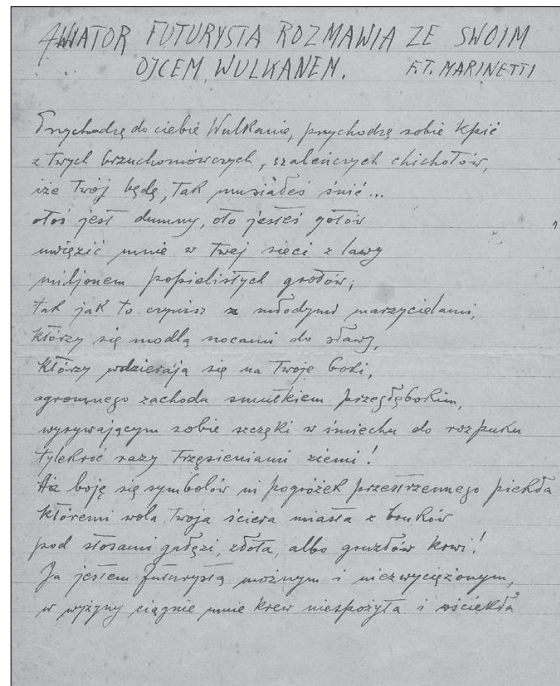 AWIATOR FUTURYSTA ROZMAWIA ZE SWOIM
OJCEM, WULKANEM. F.T. MARINETTI
Przychodzę do ciebie Wulkanie, przychodzę sobie kpić
z Twych brzuchomówczych, szaleńczych chichotów,
iże Twój będę, tak musiałeś śnić...
otoś jest dumny, oto jesteś gotów
uwięzić mnie w Twej sieci z lawy
miljonem popielistych grotów;
tak jak to czynisz z młodymi marzycielami,
którzy się modlą nocami do sławy,
którzy wdzierają się na Twoje boki,
ogromnego zachodu smutkiem przegłębokim,
wysywającym sobie szczęki w śmiechu do rozpuku
tylekroć razy trzęsieniami ziemi!
boję się symbolów ni pogróżek przestrzennego piekła
któremi wola Twoja ściera miasta z bruków
pod stosami gałęzi, złota, albo gruzłów krwi!
Ja jestem futurystą możnym i niezwyciężonym,
w wyżyny ciągnie mnie krew niespożyta i wściekła